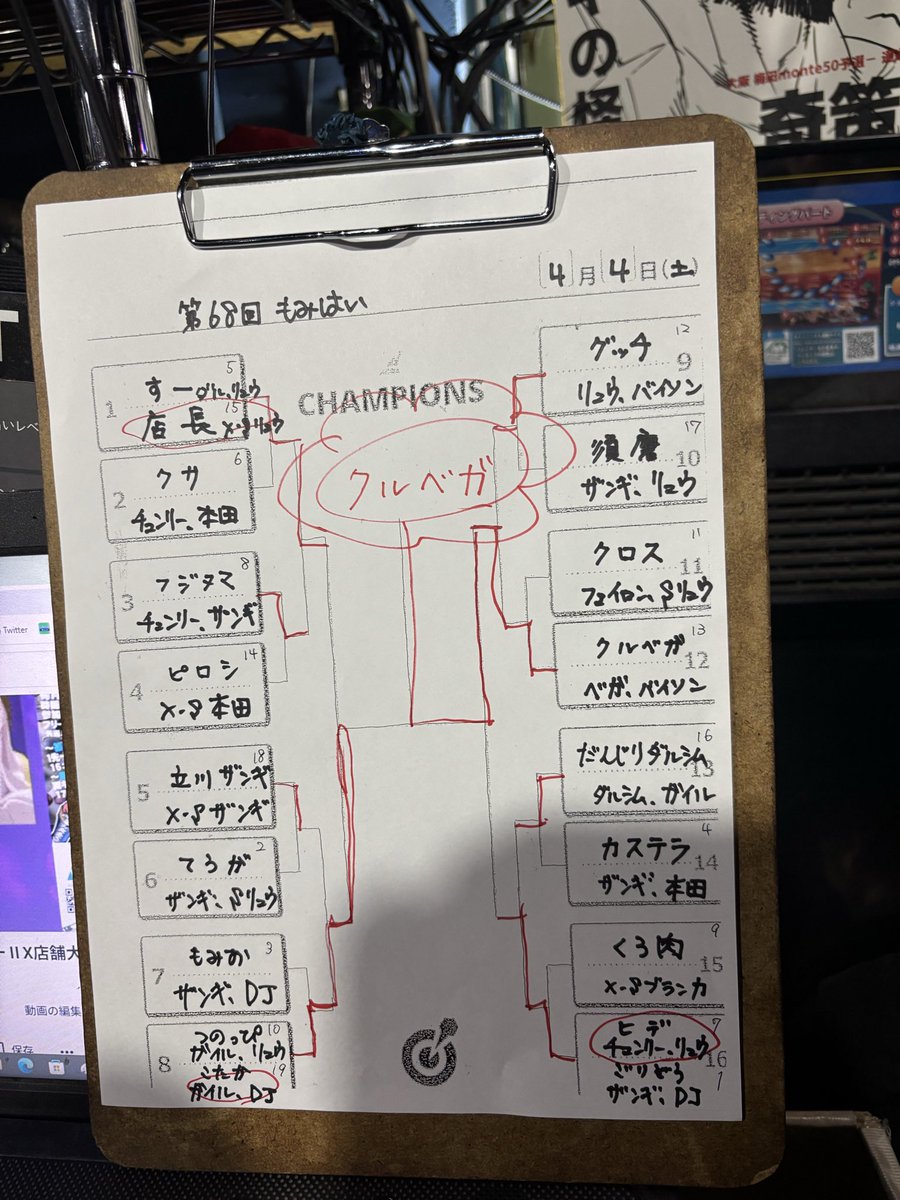 の怪
大阪 梅田monte50予選ー
奇策
ティングパート
Twitter
ⅡX店舗大
動画の編集
保存
[4]月[4]日(土)
第68回 もみはい
CHAMPIONS
クルベガ
1
5
すー ガイル、リュウ
15
店長 X-Sリュウ
2
6
クサ
チュンリー、本田
3
8
フジタマ
チュンリー、ザンギ
4
14
ピロシ
X-S 本田
5
18
立川ザンギ
X-Sザンギ
6
2
てろが
ザンギ、Sリュウ
7
3
もみお
ザンギ、DJ
8
10
つのっぴ
ガイル、リュウ
19
こたか
ガイル、DJ
12
ゲッチ
9
リュウ、バイソン
17
須磨
10
ザンギ、リュウ
11
クロス
11
フェイロン、Sリュウ
13
クルベガ
12
ベガ、バイソン
16
だんじりダルシム
13
ダルシム、ガイル
4
カステラ
14
ザンギ、本田
9
くろ肉
15
X-Sブランカ
7
ヒデ
チュンリー、リュウ
16
ごりどう
1
ザンギ、DJ